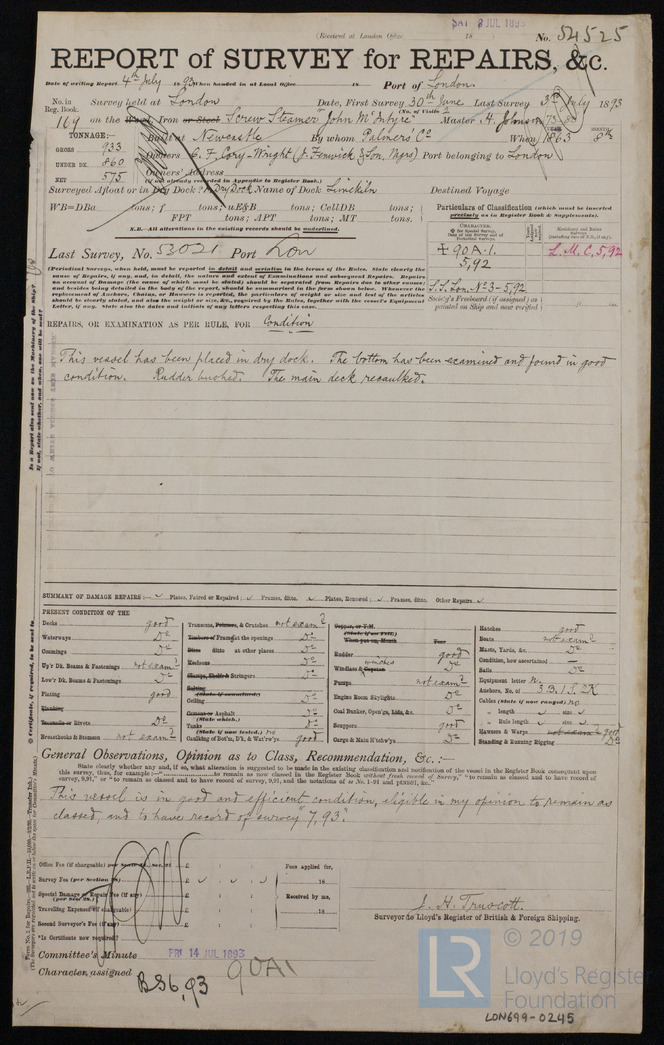 SAT 8 JUL 1893
(Received at London Office 18 No. 54525
REPORT of SURVEY for REPAIRS, &c.
Date of writing Report 4th July 1893 When handed in at Local Office 18 Port of London.
No. in Reg. Book. Survey held at London Date, First Survey 30th June Last Survey 3rd July 1893
(No. of Visits
169 on the Wood, Iron or Steel Screw Steamer "John McIntyre" Master H. Johnson
TONNAGE:— Built at Newcastle By whom Palmers' Co When 1863 8th
YEAR MONTH
GROSS 933
UNDER DK. 860 Owners C. F. Cory-Wright (J. Fenwick & Son, Mgrs) Port belonging to London
NET 575 Owners' Address
(if not already recorded in Appendix to Register Book.)
Surveyed Afloat or in Dry Dock? Dry Dock Name of Dock Limekiln Destined Voyage
WB=DBa tons; f tons; uE&B tons; CellDB tons;
FPT tons; APT tons; MT tons.
N.B.—All alterations in the existing records should be underlined.
Particulars of Classification (which must be inserted precisely as in Register Book & Supplements).
Last Survey, No. 53021 Port Lon
+ 90A.1. L.M.C. 5,92
5,92
S.S. Lon. No 3 - 5,92
Society's Freeboard (if assigned) as painted on Ship and now verified
(Periodical Surveys, when held, must be reported in detail and seriatim in the terms of the Rules. State clearly the
cause of Repairs, if any, and, in detail, the nature and extent of Examinations and subsequent Repairs. Repairs
on account of Damage (the cause of which must be stated) should be separated from Repairs due to other causes;
and besides being detailed in the body of the report, should be summarized in the form shown below. Whenever the
REPAIRS, OR EXAMINATION AS PER RULE, FOR Condition
This vessel has been placed in dry dock. The bottom has been examined and found in good
condition. Rudder bushed. The main deck recaulked.
SUMMARY OF DAMAGE REPAIRS:— Plates, Faired or Repaired; Frames, ditto. Plates, Renewed; Frames, ditto. Other Repairs
PRESENT CONDITION OF THE
Decks good
Waterways Do
Comings Do
Up'r Dk. Beams & Fastenings not exam?
Low'r Dk. Beams & Fastenings Do
Plating good
Planking
Treenails or Rivets Do
Breasthooks & Stemson not exam?
Transoms, Pointers, & Crutches not exam?
Timbers or Frames at the openings Do
Ditto ditto at other places Do
Keelsons Do
Clamps, Shelfs & Stringers Do
Salting
(State if renewed.)
Ceiling Do
Cement or Asphalt Do
(State which.)
Tanks Do
(State if now tested.) no
Caulking of Bot'm, D'k, & Wat'rw'ys good
Copper, or Y.M.
(State if on Felt.)
When put on, Month Year
Rudder good
Windlass & Capstan winches Do
Pumps not exam?
Engine Room Skylights Do
Coal Bunker, Open'gs, Lids, &c. Do
Scuppers good
Cargo & Main H'tchw'ys Do
Hatches good
Boats not exam?
Masts, Yards, &c. Do
Condition, how ascertained —
Sails Do
Equipment letter n.
Anchors, No. of 3 B. 1 S. 2 K
Cables (State if now ranged) no
" length size
" Rule length size
Hawsers & Warps not exam? good
Standing & Running Rigging Do
General Observations, Opinion as to Class, Recommendation, &c. :—
State clearly whether any, and if so, what alteration is suggested to be made in the existing classification and notification of the vessel in the Register Book consequent upon
This vessel is in good and efficient condition, eligible in my opinion to remain as
classed, and to have record of survey 7,93.
Office Fee (if chargeable) £ Fees applied for,
Survey Fee (per Section 28) £ 18
Special Damage or Repair Fee (if any) £ Received by me,
(per Sect. 28.)
Travelling Expenses (if chargeable) £ 18
Second Surveyor's Fee (if any) £
*Is Certificate now required?
J. H. Truscott.
Surveyor to Lloyd's Register of British & Foreign Shipping.
Committee's Minute FRI 14 JUL 1893
Character assigned 90A1
BS6,93
LR © 2019
Lloyd's Register
Foundation
LON699-0245